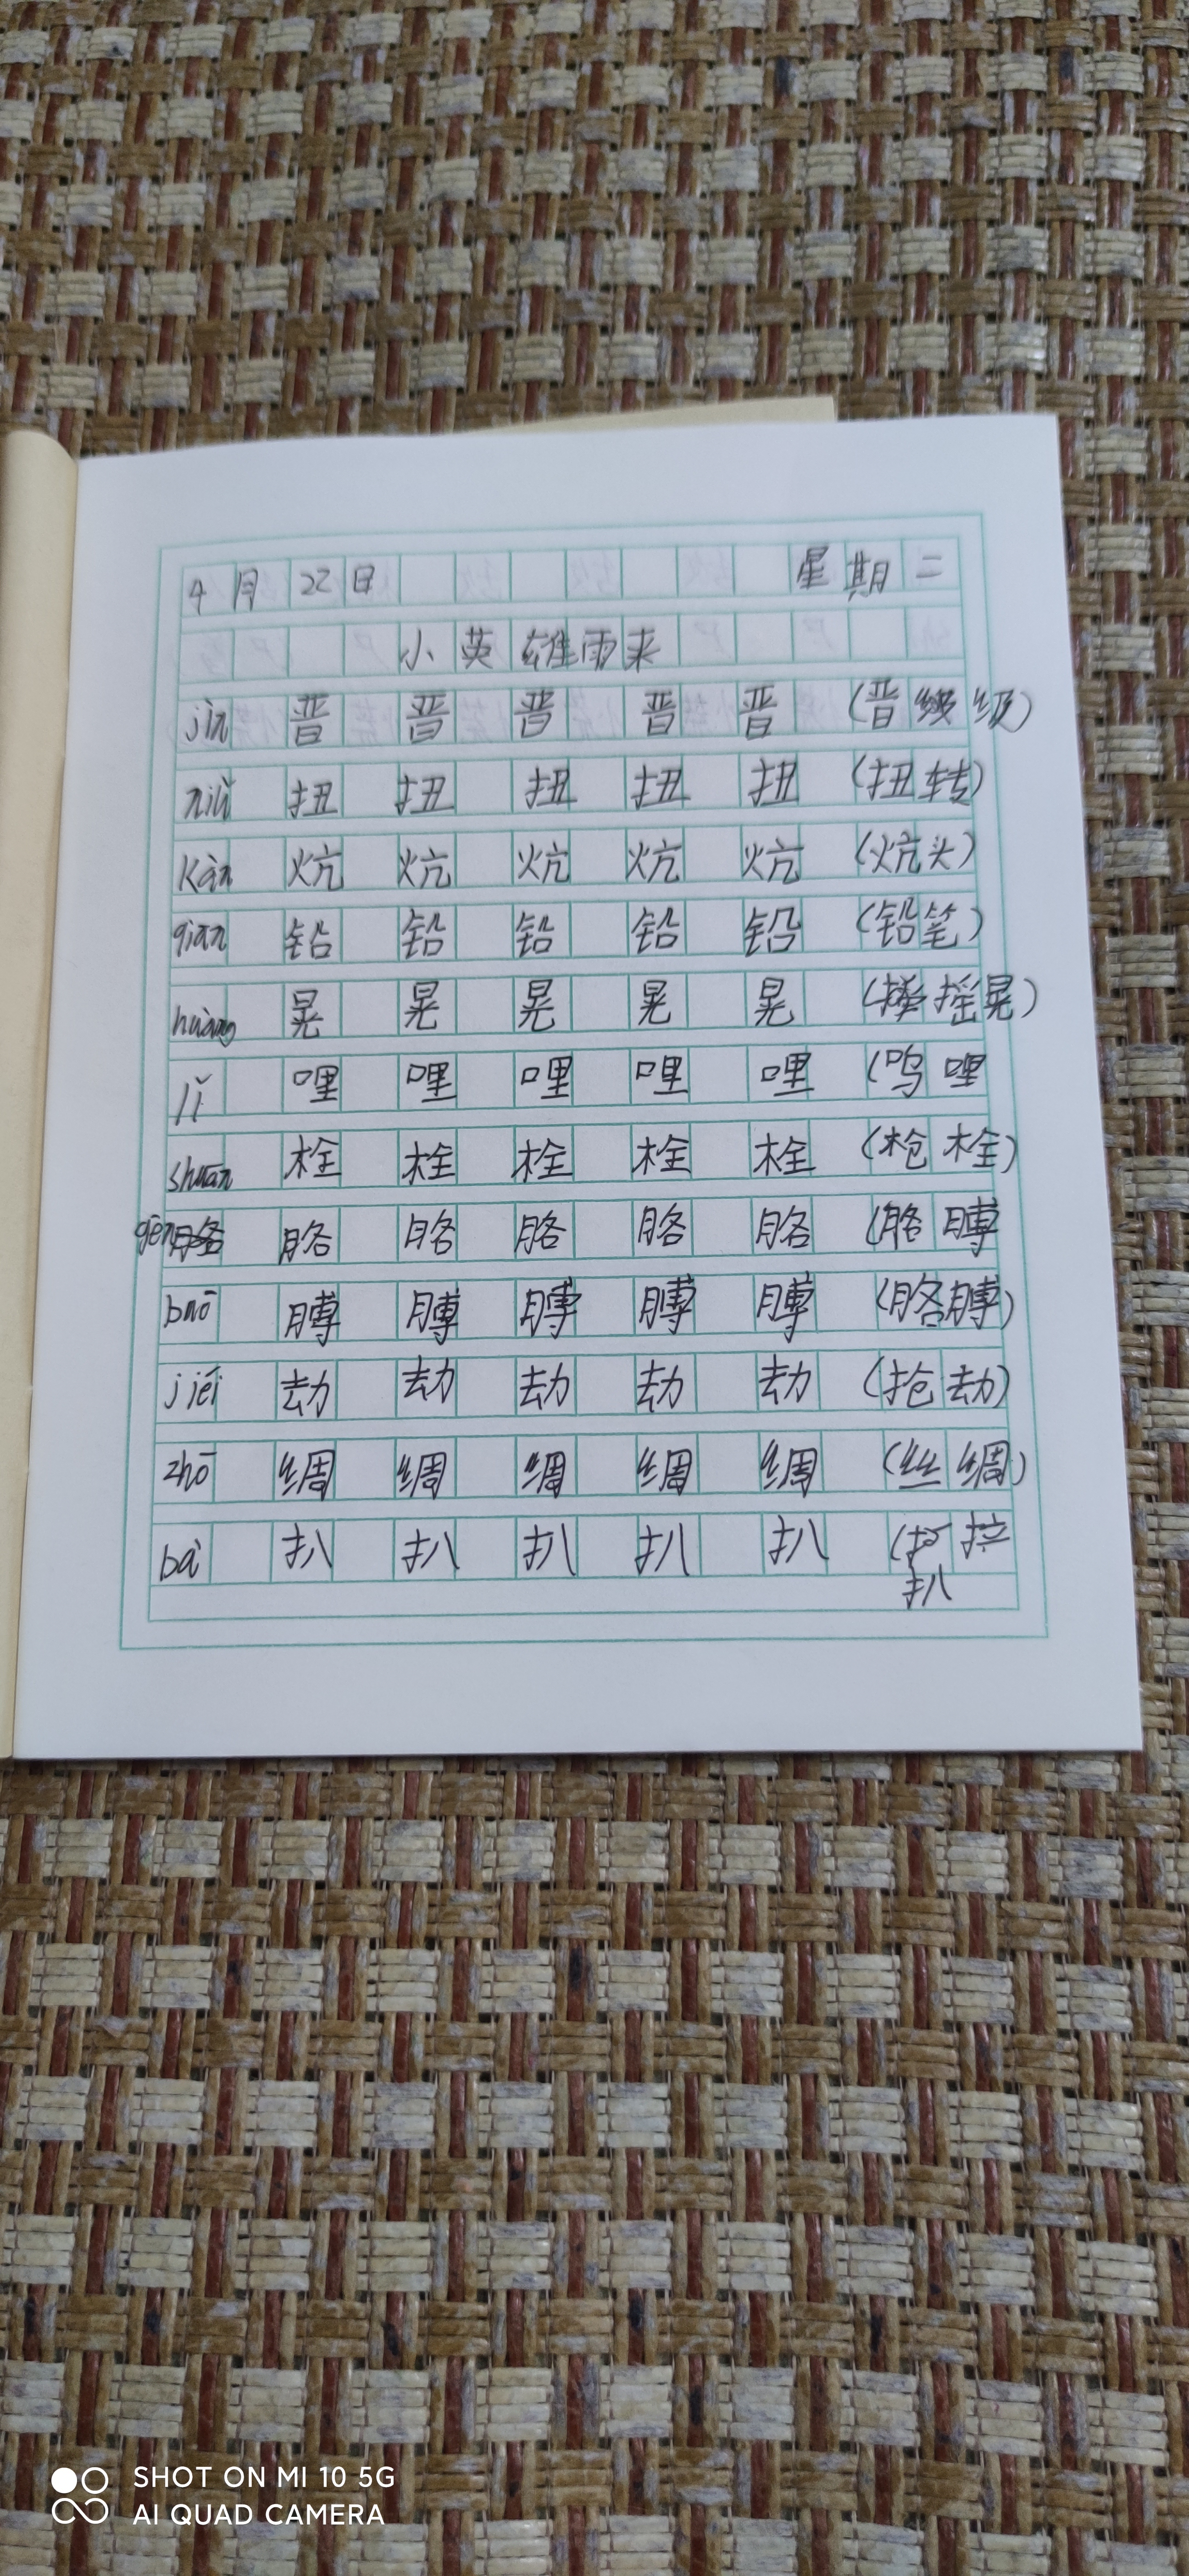 4月22日 星期二
小英雄雨来
jìn 晋 晋 晋 晋 晋 (晋级)
niǔ 扭 扭 扭 扭 扭 (扭转)
Kàn 炕 炕 炕 炕 炕 (炕头)
qiān 铅 铅 铅 铅 铅 (铅笔)
huàng 晃 晃 晃 晃 晃 (摇晃)
lǐ 哩 哩 哩 哩 哩 (呜哩
shuān 栓 栓 栓 栓 栓 (枪栓)
gē 胳 胳 胳 胳 胳 (胳膊
buō 膊 膊 膊 膊 膊 (胳膊)
jiéi 劫 劫 劫 劫 劫 (抢劫)
zhō 绸 绸 绸 绸 绸 (丝绸)
bā 扒 扒 扒 扒 扒 ( 拉
扒
SHOT ON MI 10 5G
AI QUAD CAMERA